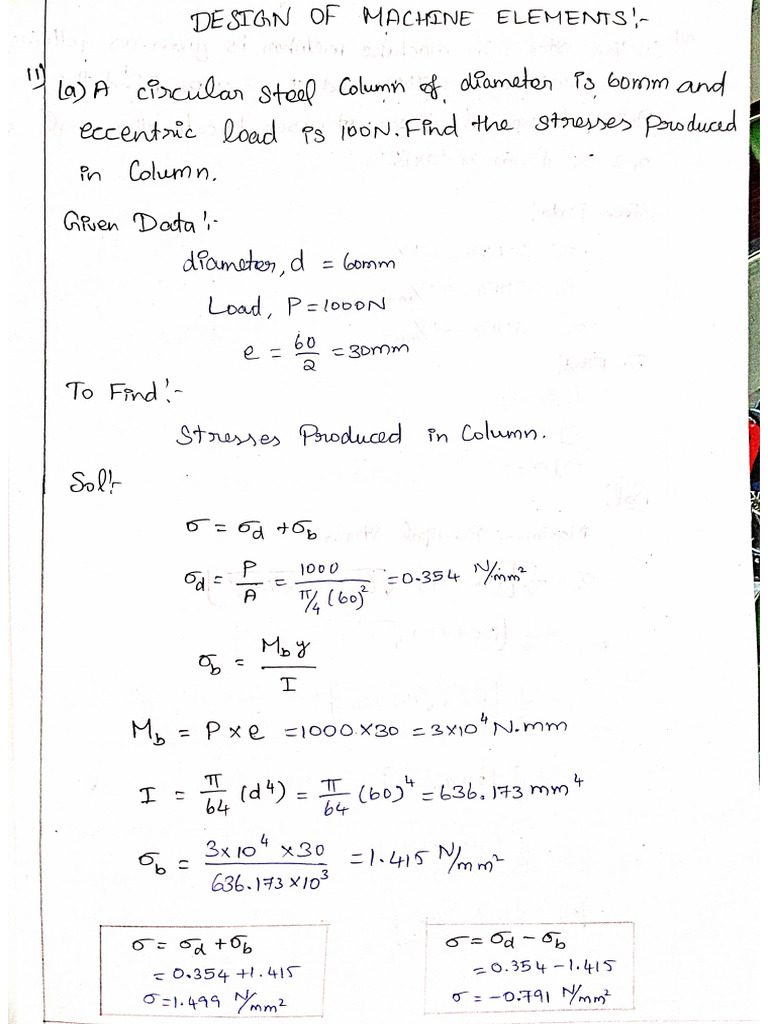 DESIGN OF MACHINE ELEMENTS:-
11) (a) A circular steel Column of diameter is 60mm and
eccentric load is 100N. Find the stresses Produced
in Column.
Given Data:-
diameter, d = 60mm
Load, P = 1000N
e = 60/2 = 30mm
To Find:-
Stresses Produced in Column.
Sol:-
σ = σd + σb
σd = P/A = 1000/(π/4 (60)²) = 0.354 N/mm²
σb = Mb y / I
Mb = P × e = 1000 × 30 = 3×10⁴ N.mm
I = π/64 (d⁴) = π/64 (60)⁴ = 636.173 mm⁴
σb = 3×10⁴ × 30 / 636.173 × 10³ = 1.415 N/mm²
σ = σd + σb
= 0.354 + 1.415
σ = 1.499 N/mm²
σ = σd − σb
= 0.354 − 1.415
σ = −0.791 N/mm²